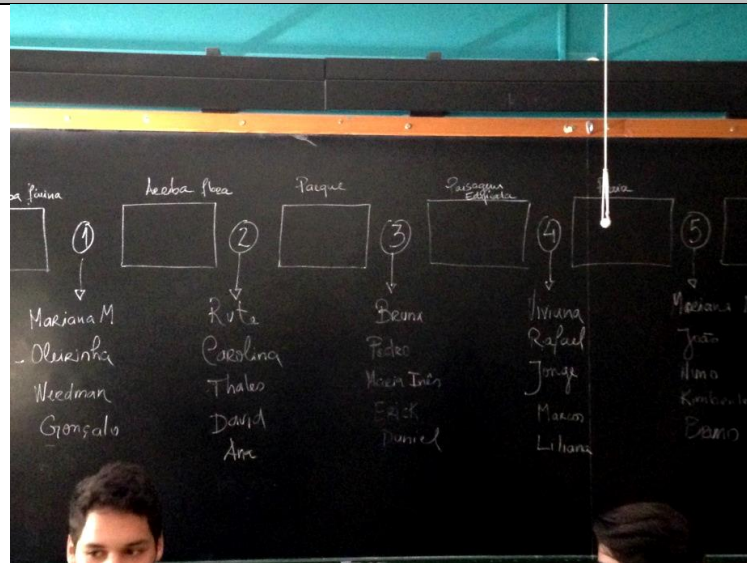 Parque
Paisagem
Edificada
1
2
3
4
5
Mariana M
Oleirinha
Weedman
Gonçalo
Ruta
Carolina
Thales
David
Ana
Bruna
Pedro
Maria Inês
Erick
Daniel
Viviana
Rafael
Jorge
Marcos
Liliana
Mariana
João
Nuno
Bruno